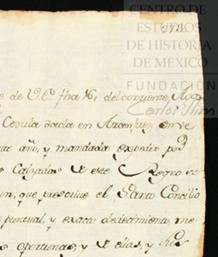 CENTRO DE
ESTUDIOS
DE HISTORIA
DE MEXICO
FUNDACIÓN
Carlos Slim
e de V.E. fha 16, del corriente,
Cedula dada en Aranjuez en ve
año, y mandada expedir por
Calzadas de este Reyno
un, que prescrive el Santo Concilio
puntual, y exacto obedecimiento me
s oportunas, y de ellas, y